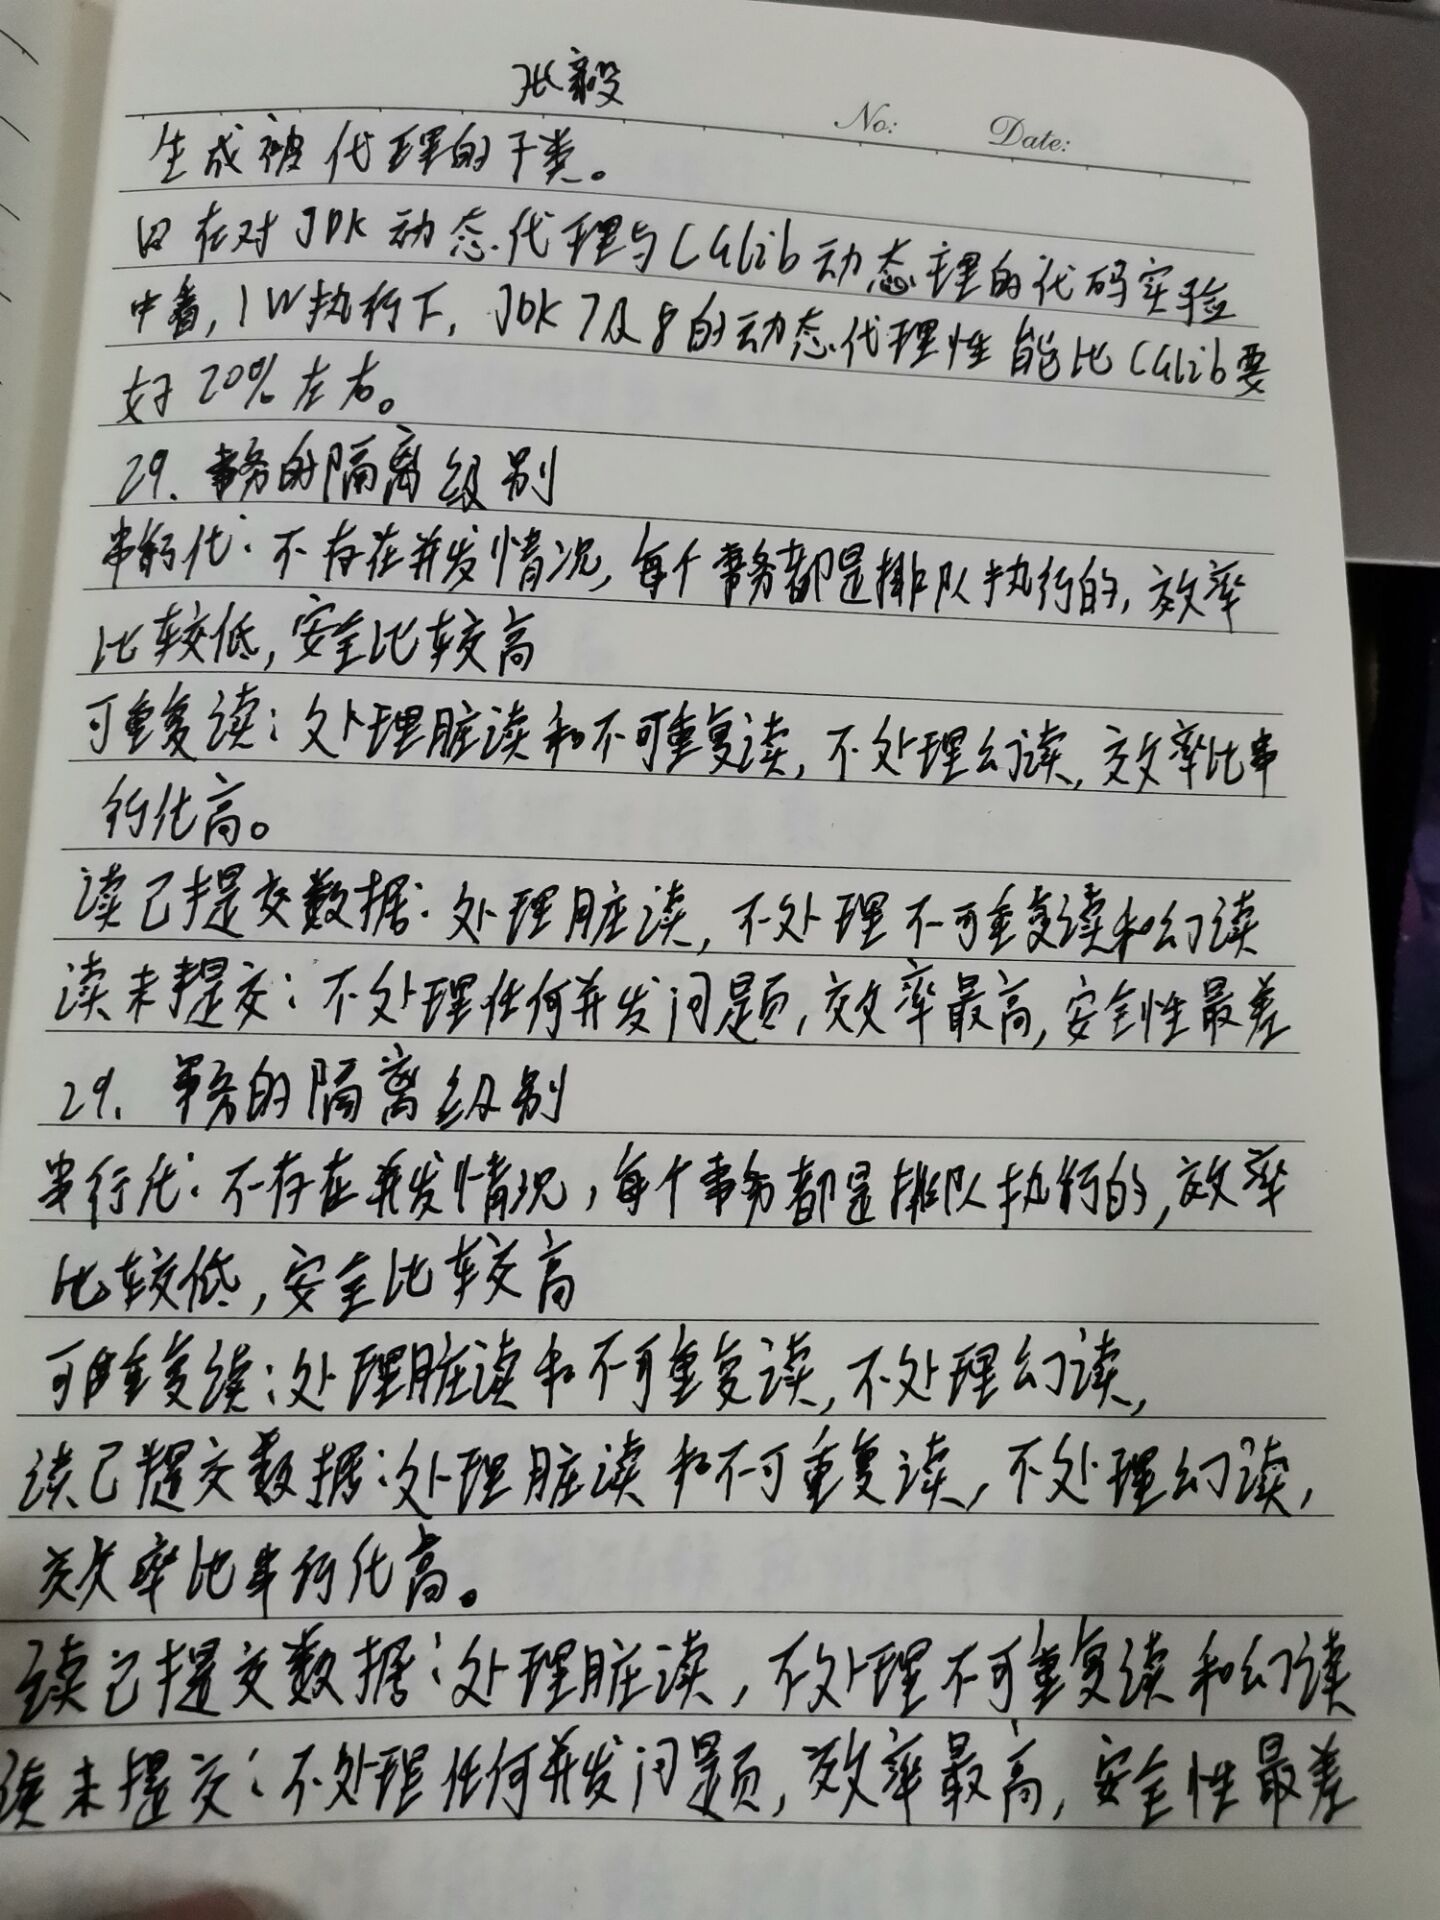 张毅
No: Date:
生成被代理的子类。
因在对JDK动态代理与CGlib动态理的代码实验
中看,1W执行下,JDK7及8的动态代理性能比CGlib要
好20%左右。
29.事务的隔离级别
串行化:不存在并发情况,每个事务都是排队执行的,效率
比较低,安全比较高
可重复读:处理脏读和不可重复读,不处理幻读,效率比串
行化高。
读已提交数据:处理脏读,不处理不可重复读和幻读
读未提交:不处理任何并发问题,效率最高,安全性最差
29.事务的隔离级别
串行化:不存在并发情况,每个事务都是排队执行的,效率
比较低,安全比较高
可重复读:处理脏读和不可重复读,不处理幻读,
读已提交数据:处理脏读和不可重复读,不处理幻读,
效率比串行化高。
读已提交数据:处理脏读,不处理不可重复读和幻读
读未提交:不处理任何并发问题,效率最高,安全性最差